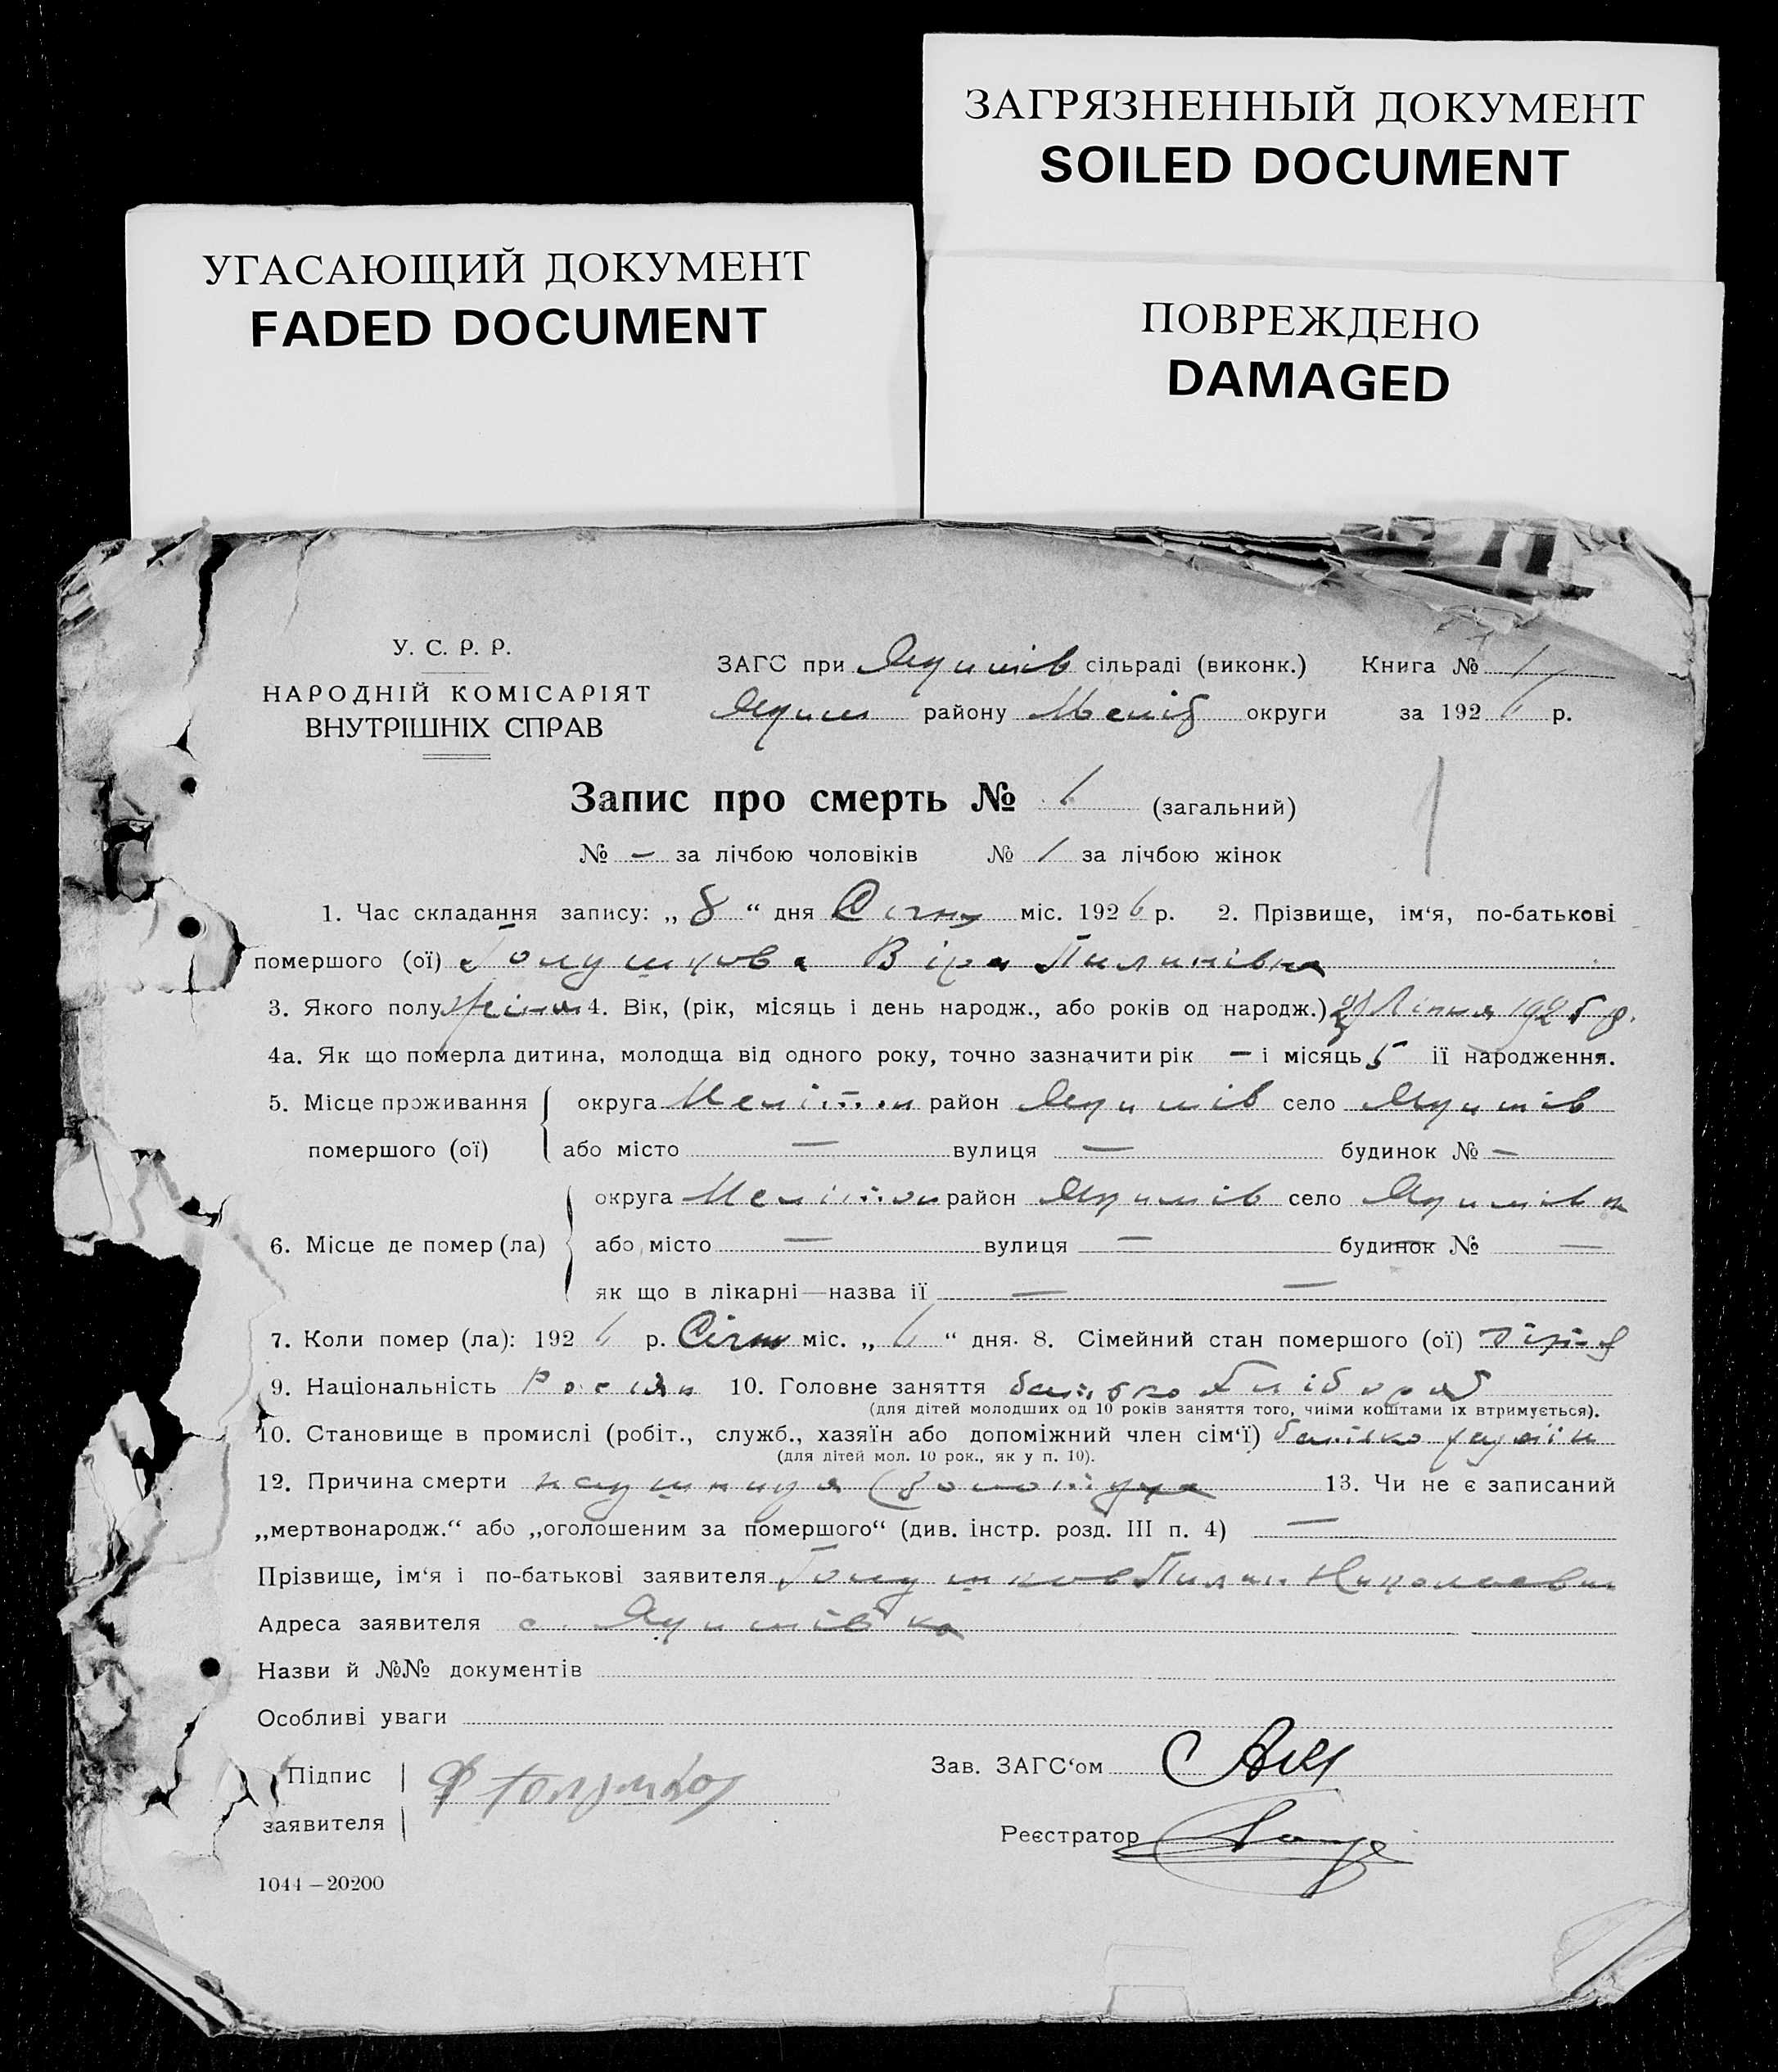 ЗАГРЯЗНЕННЫЙ ДОКУМЕНТ
SOILED DOCUMENT
УГАСАЮЩИЙ ДОКУМЕНТ
FADED DOCUMENT
ПОВРЕЖДЕНО
DAMAGED
У. С. Р. Р.
НАРОДНІЙ КОМІСАРІЯТ
ВНУТРІШНІХ СПРАВ
ЗАГС при Якимів сільраді (виконк.) Книга № 1
Яким району Меліт округи за 1926 р.
Запис про смерть № 1 (загальний)
1
№ — за лічбою чоловіків № 1 за лічбою жінок
1. Час складання запису: „ 8 “ дня Січня міс. 1926 р. 2. Прізвище, ім‘я, по-батькові
помершого (ої) Голушкова Віра Пилипівна
3. Якого полу жіноч 4. Вік, (рік, місяць і день народж., або років од народж.) Липня 1925 р.
4а. Як що померла дитина, молодща від одного року, точно зазначити рік — і місяць 5 ії народження.
5. Місце проживання помершого (ої) округа Мелітоп район Якимів село Якимів
або місто — вулиця — будинок № —
6. Місце де помер (ла) округа Мелітоп район Якимів село Якимівка
або місто — вулиця — будинок № —
як що в лікарні—назва ії — —
7. Коли помер (ла): 1926 р. Січня міс. „ 6 “ дня. 8. Сімейний стан помершого (ої)
9. Національність Росіян 10. Головне заняття батько хлібороб
(для дітей молодших од 10 років заняття того, чиіми коштами їх втримується).
10. Становище в промислі (робіт., служб., хазяїн або допоміжний член сім‘ї) батько хазяїн
(для дітей мол. 10 рок., як у п. 10).
12. Причина смерти (золотуха 13. Чи не є записаний
„мертвонародж.“ або „оголошеним за помершого“ (див. інстр. розд. III п. 4) —
Прізвище, ім‘я і по-батькові заявителя Голушков Пилип Николаевич
Адреса заявителя с. Якимівка
Назви й №№ документів
Особливі уваги
Підпис заявителя Ф Голушков
Зав. ЗАГС‘ом
Реєстратор
1044—20200